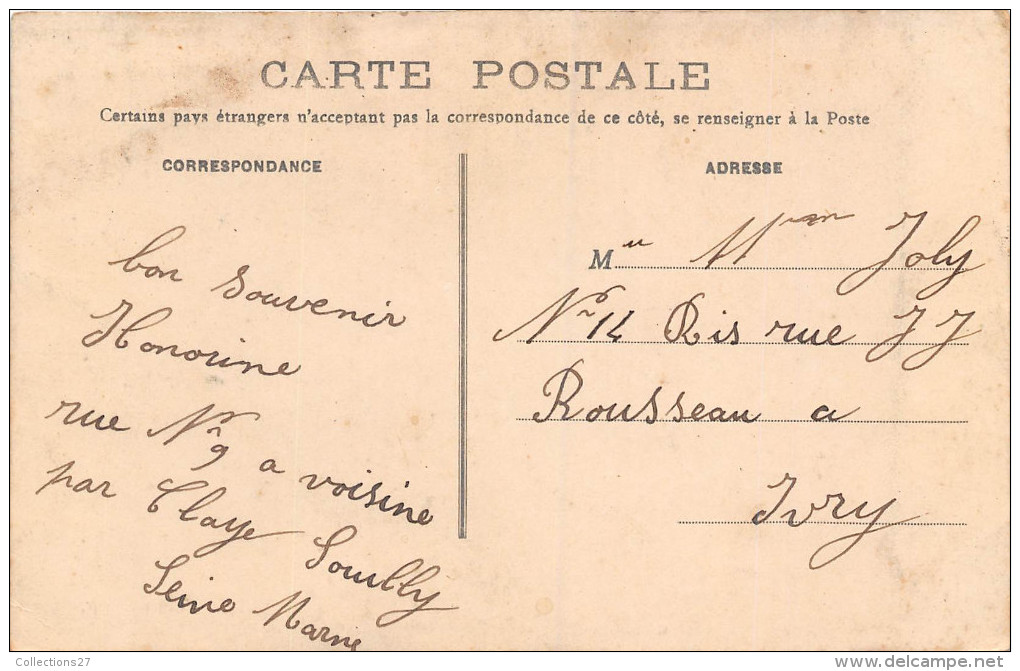 CARTE POSTALE
Certains pays étrangers n'acceptant pas la correspondance de ce côté, se renseigner à la Poste
CORRESPONDANCE
bon souvenir
Honorine
rue N° 9 a voisine
par Claye Souilly
Seine Marne
ADRESSE
M Joly
N° 14 Bis rue JJ
Rousseau a
Ivry
Collections27
delcampe.net